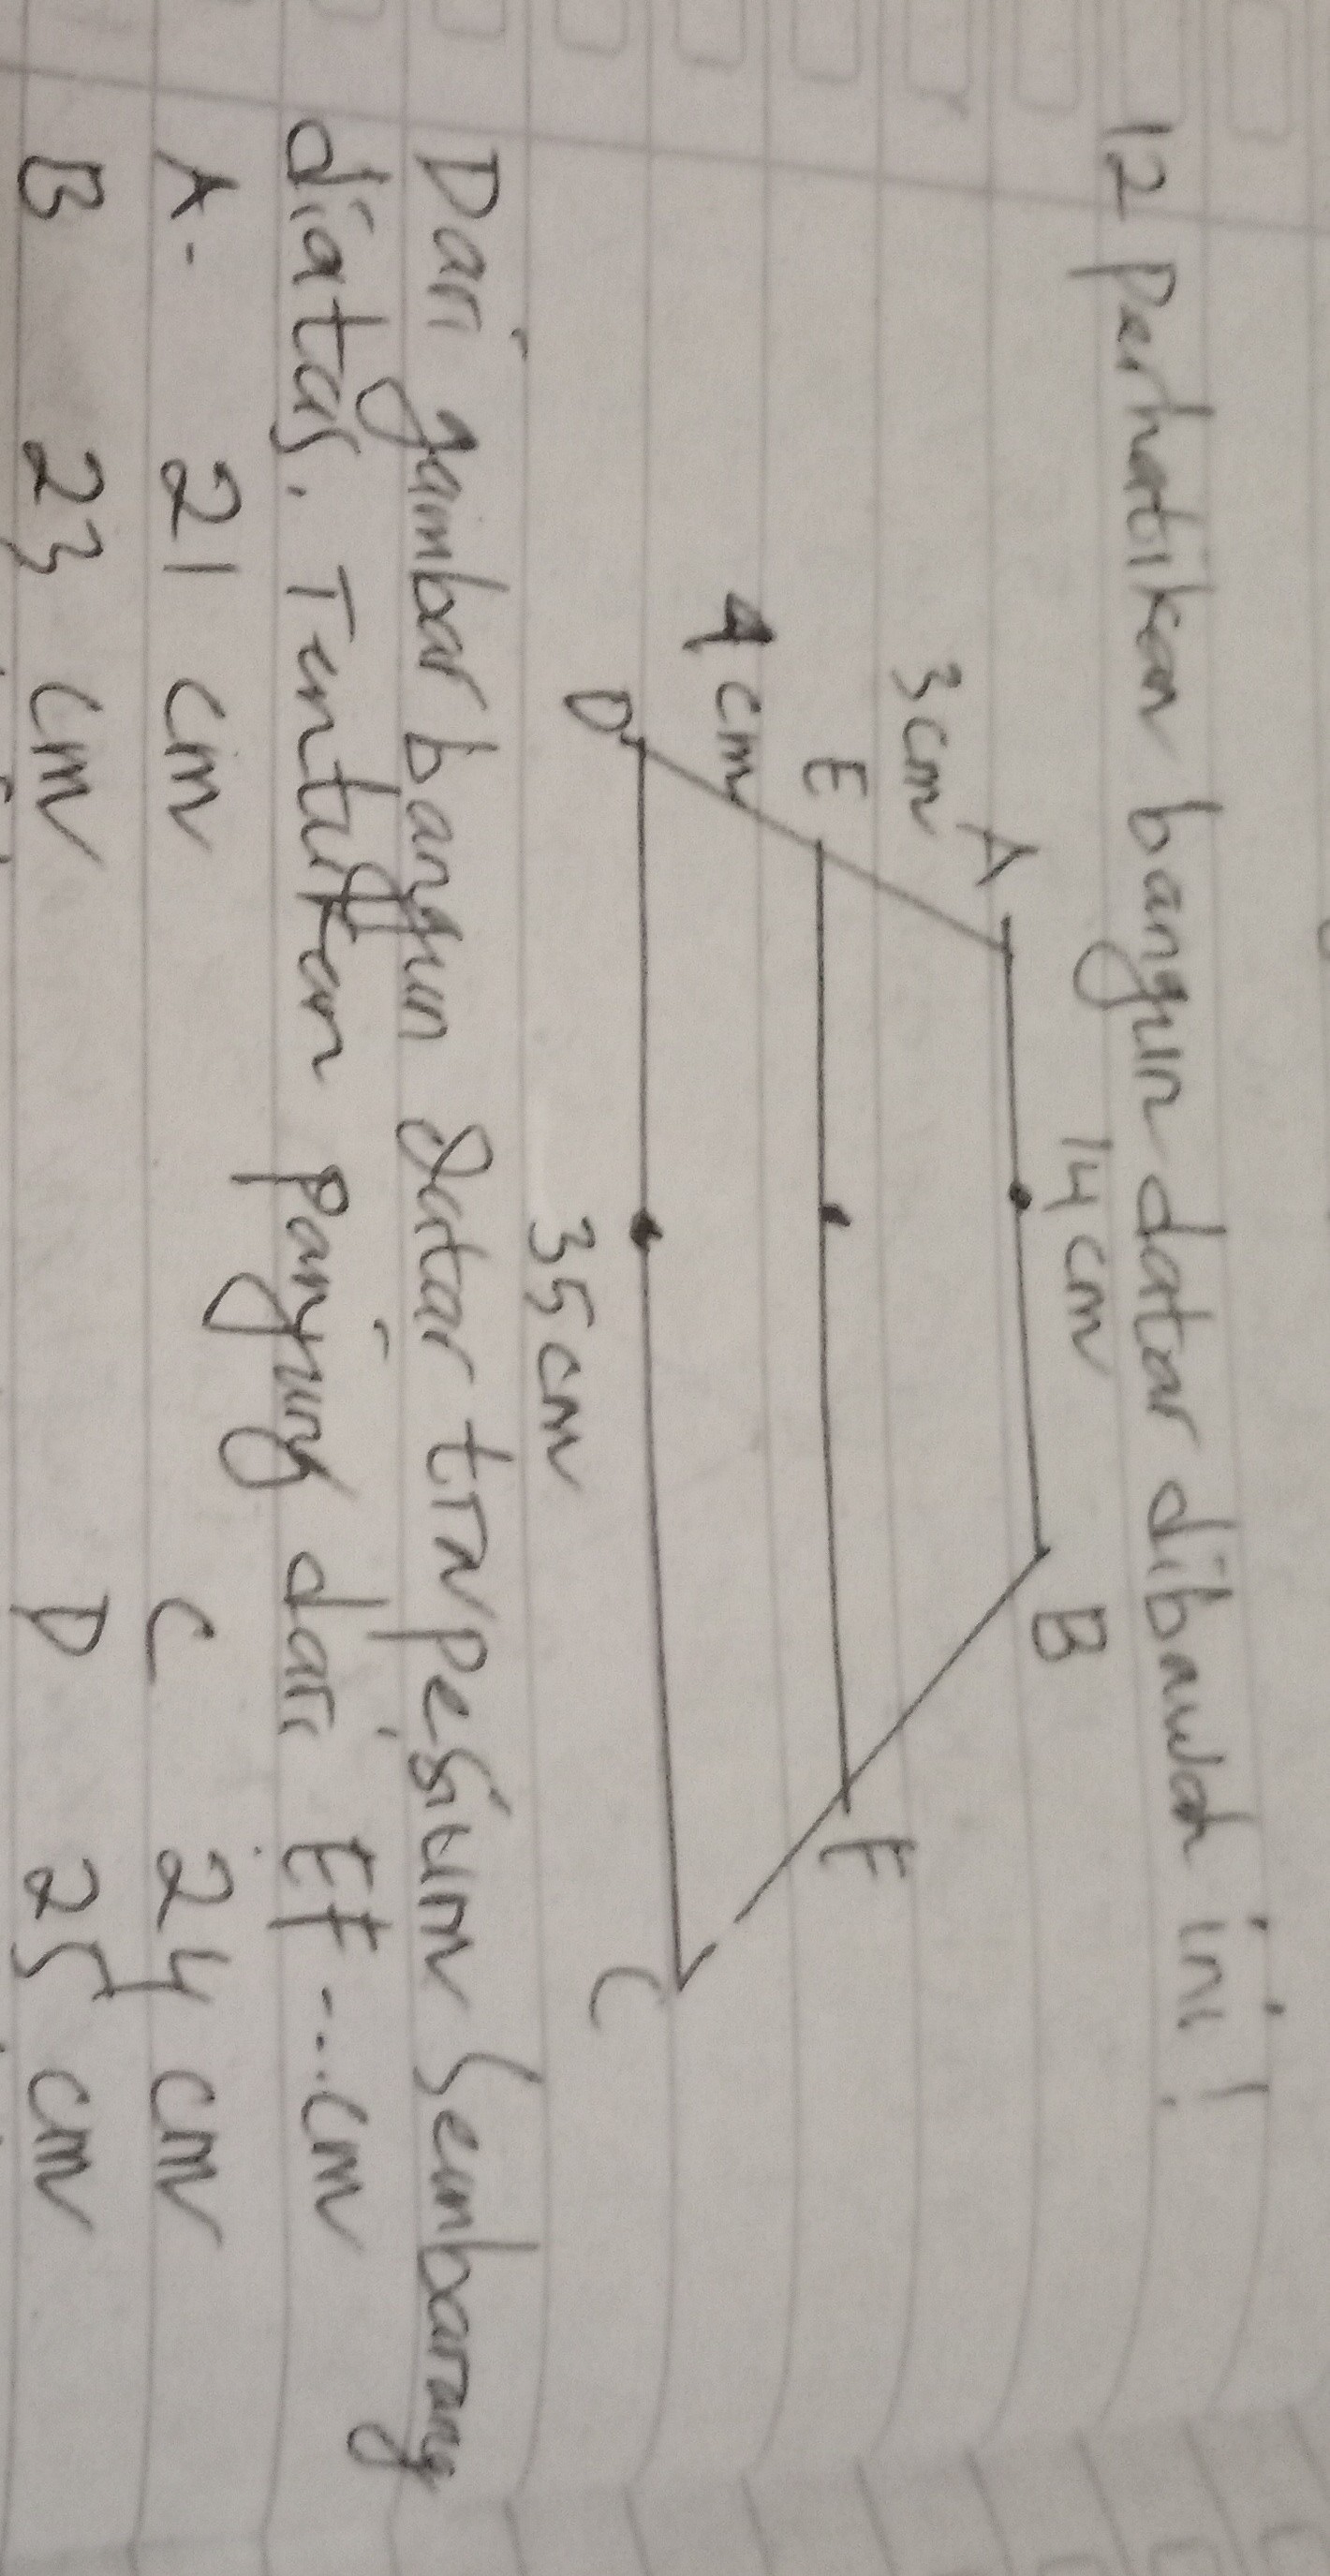 12 Perhatikan bangun datar dibawah ini!
14 cm
A B
3 cm
E F
4 cm
D C
35 cm
Dari gambar bangun datar trapesium sembarang
diatas. Tentukan Panjang dari EF ... cm
A. 21 cm C 24 cm
B 23 cm D 25 cm